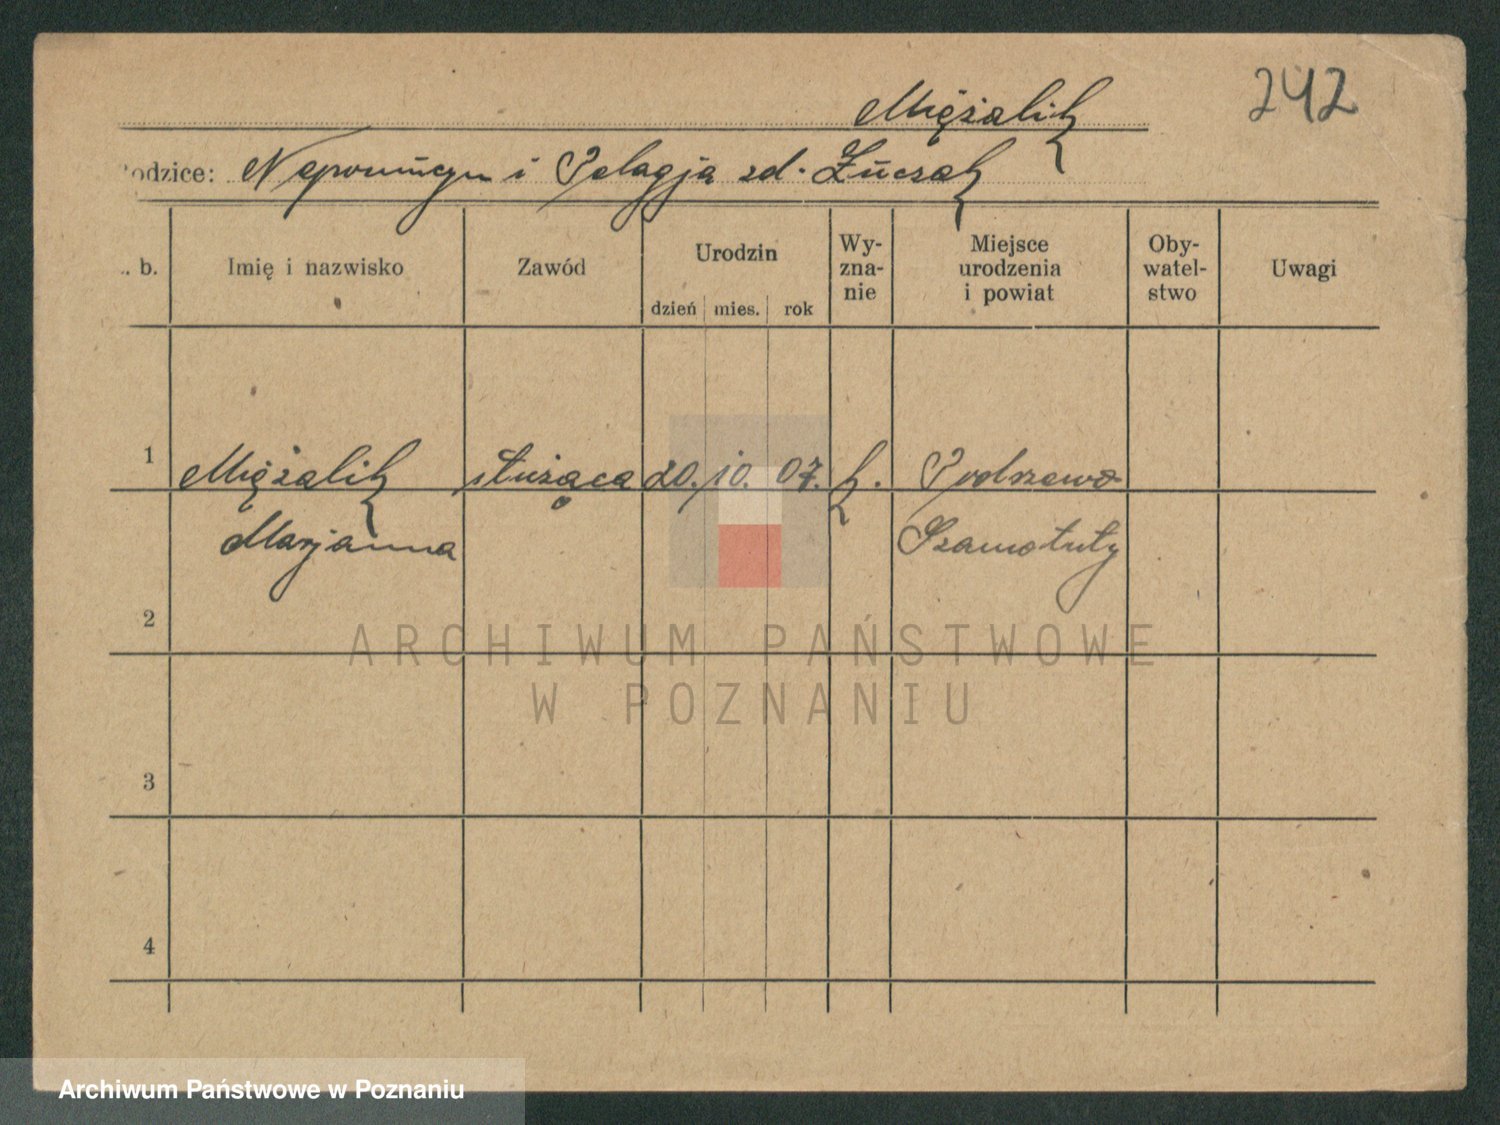 242
Miężalik
Rodzice: Nepomucyn i Pelagja zd. Łuczak
L. b. Imię i nazwisko Zawód Urodzin dzień mies. rok Wy-zna-nie Miejsce urodzenia i powiat Oby-watel-stwo Uwagi
1 Miężalik służąca 20. 10. 07. k. Podrzewo
Marjanna Szamotuły
2
ARCHIWUM PAŃSTWOWE
W POZNANIU
3
4
Archiwum Państwowe w Poznaniu